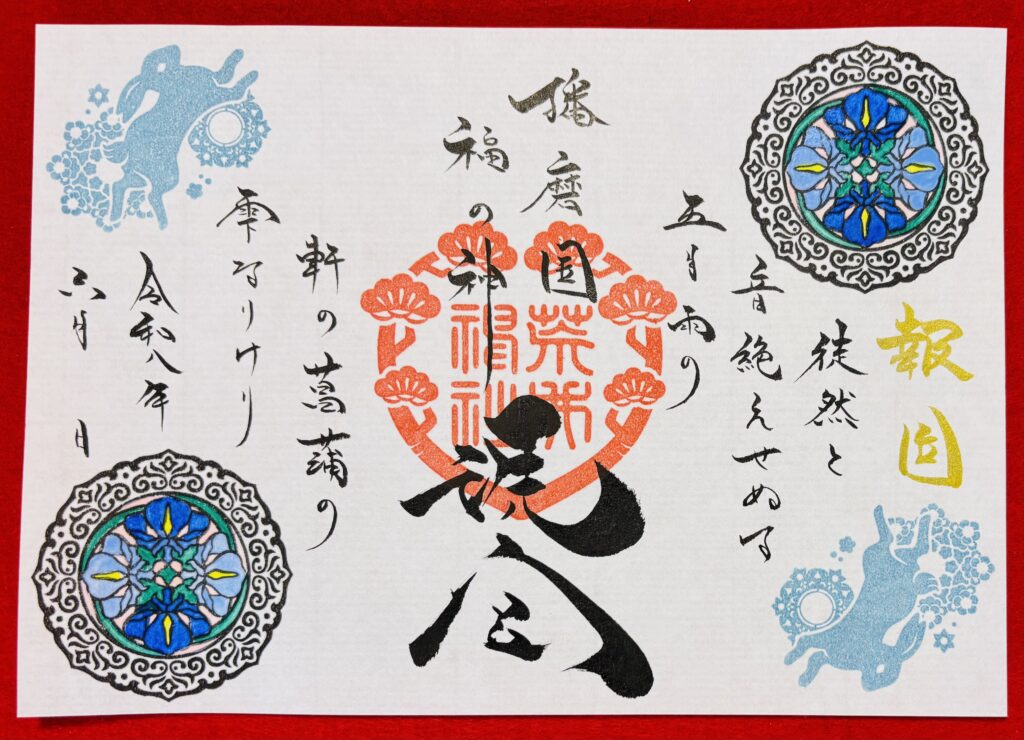 報国
徒然と
音絶えせぬは
五月雨の
播磨国
福の神
荒井
神社
軒の菖蒲の
雫なりけり
令和八年
六月 日